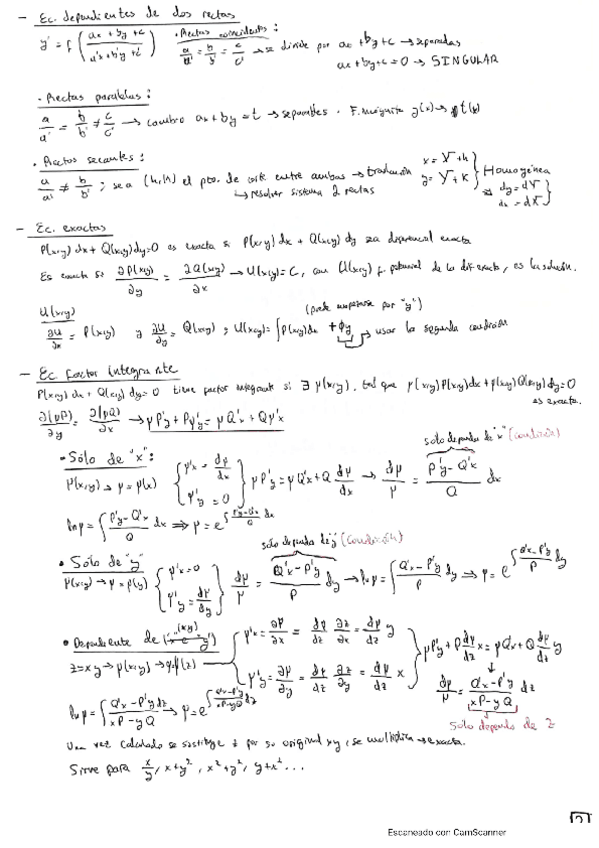 - Ec. dependientes de dos rectas
y' = f ( (ax + by + c) / (a'x + b'y + c') ) · Rectas coincidentes: a/a' = b/b' = c/c' → se divide por ax + by + c → separadas
ax + by + c = 0 → SINGULAR
· Rectas paralelas:
a/a' = b/b' ≠ c/c' → cambio ax + by = t → separables. F. incógnita y(x) → t(x)
· Rectas secantes:
a/a' ≠ b/b' ; sea (h, k) el pto. de corte entre ambas → traslación x = X + h y = Y + k } Homogénea dy = dY dx = dX }
↳ resolver sistema 2 rectas
- Ec. exactas
P(x,y) dx + Q(x,y) dy = 0 es exacta si P(x,y) dx + Q(x,y) dy sea diferencial exacta
Es exacta si ∂P(x,y)/∂y = ∂Q(x,y)/∂x → U(x,y) = C, con U(x,y) f. potencial de la dif. exacta, es la solución.
U(x,y) (puede empezarse por "y")
∂U/∂x = P(x,y) y ∂U/∂y = Q(x,y) ; U(x,y) = ∫P(x,y)dx + φy → usar la segunda condición
- Ec. Factor integrante
P(x,y) dx + Q(x,y) dy = 0 tiene factor integrante si ∃ μ(x,y), tal que μ(x,y)P(x,y)dx + μ(x,y)Q(x,y)dy = 0
es exacta.
∂(μP)/∂y = ∂(μQ)/∂x → μP'y + Pμ'y = μQ'x + Qμ'x
· Sólo de "x": solo dependa de "x" (condición)
μ(x,y) → μ = μ(x) { μ'x = dμ/dx μ'y = 0 } μP'y = μQ'x + Q dμ/dx → dμ/μ = (P'y - Q'x)/Q dx
ln μ = ∫ (P'y - Q'x)/Q dx ⇒ μ = e^∫ (P'y - Q'x)/Q dx
solo dependa de y (condición)
· Solo de "y"
μ(x,y) → μ = μ(y) { μ'x = 0 μ'y = dμ/dy } dμ/μ = (Q'x - P'y)/P dy → ln μ = ∫ (Q'x - P'y)/P dy → μ = e^∫ (Q'x - P'y)/P dy
· Dependiente de (xy)
z = xy → μ(x,y) → μ(z) { μ'x = ∂μ/∂x = dμ/dz ∂z/∂x = dμ/dz y
μ'y = ∂μ/∂y = dμ/dz ∂z/∂y = dμ/dz x } μP'y + P dμ/dz x = μQ'x + Q dμ/dz y
dμ/μ = (Q'x - P'y)/(xP - yQ) dz
solo dependa de z
ln μ = ∫ (Q'x - P'y)dz/(xP - yQ) → μ = e^∫ (Q'x - P'y)/(xP - yQ) dz
Una vez calculado se sustituye z por su original xy, se multiplica → exacta.
Sirve para x/y, x + y², x² + y², y + x² ...
Escaneado con CamScanner